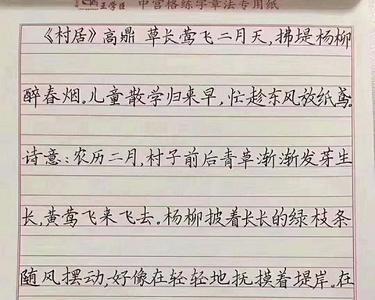 王学臣 中宫格练字章法专用纸
《村居》高鼎 草长莺飞二月天,拂堤杨柳
醉春烟。儿童散学归来早,忙趁东风放纸鸢。
诗意:农历二月,村子前后青草渐渐发芽生
长,黄莺飞来飞去。杨柳披着长长的绿枝条
随风摆动,好像在轻轻地抚摸着堤岸。在